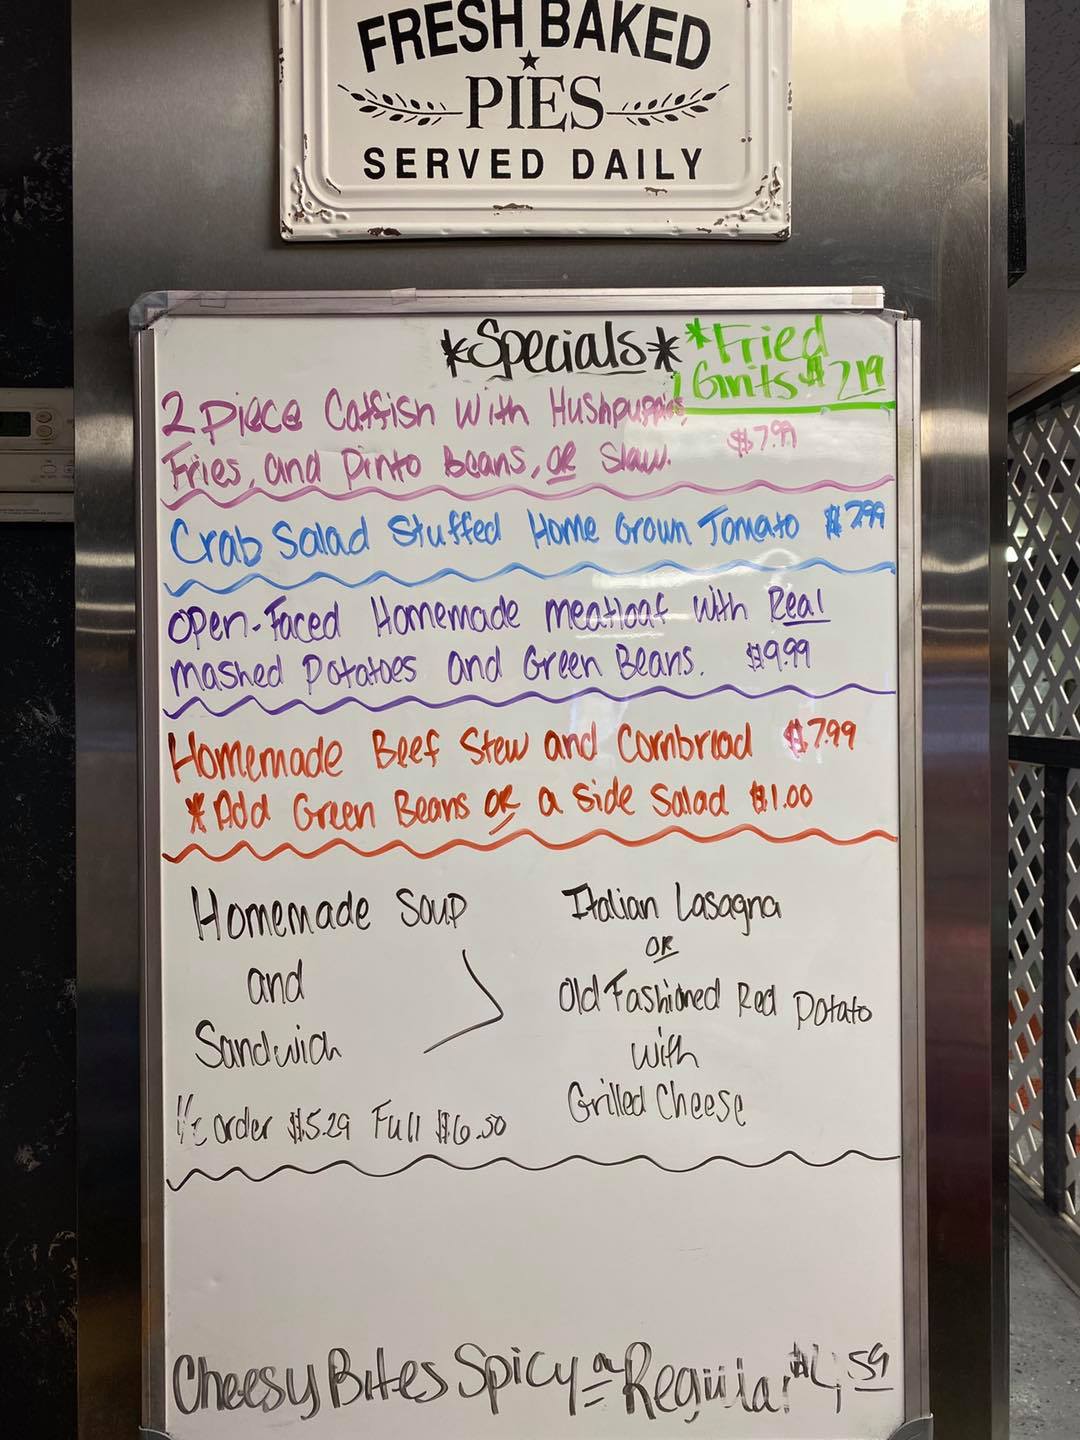 FRESH BAKED
PIES
SERVED DAILY
*Specials*
*Fried
Grits $2.19
2 piece Catfish with Hushpuppies,
Fries, and Pinto Beans, OR Slaw. $7.99
Crab Salad Stuffed Home Grown Tomato $7.99
Open-Faced Homemade meatloaf with Real
mashed Potatoes and Green Beans. $9.99
Homemade Beef Stew and Cornbread $7.99
*Add Green Beans OR a side Salad $1.00
Homemade Soup
and
Sandwich
1/2 order $5.29 Full $6.50
Italian Lasagna
OR
Old Fashioned Red Potato
with
Grilled Cheese
Cheesy Bites Spicy or Regular